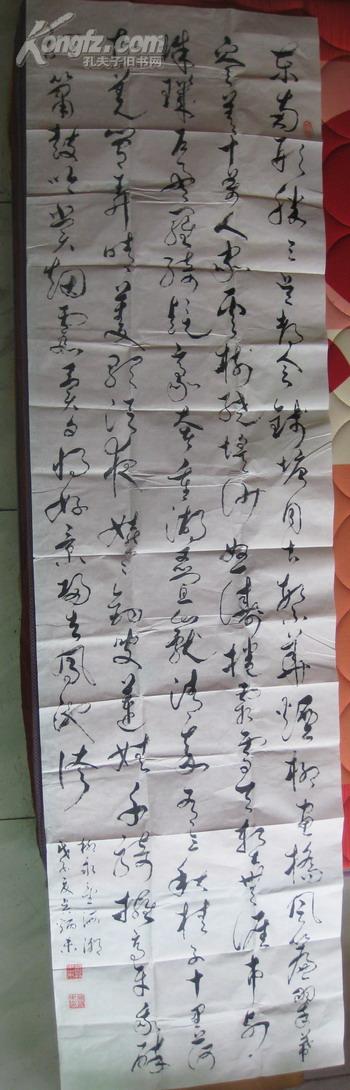 Kongfz.com
孔夫子旧书网
東南形勝三吳都會錢塘自古繁華煙柳畫橋風簾翠幕
參差十萬人家雲樹繞堤沙怒濤捲霜雪天塹無涯市列
珠璣戶盈羅綺競豪奢重湖疊巘清嘉有三秋桂子十里荷
花羌管弄晴菱歌泛夜嬉嬉釣叟蓮娃千騎擁高牙乘醉
聽簫鼓吟賞烟霞異日將好景歸去鳳池誇
柳永望海潮
戊子夏